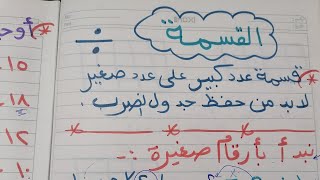 القسمة
÷
قسمة عدد كبير على عدد صغير
لابد من حفظ جدول الضرب.
نبدأ بأرقام صغيرة :-
أوج
١٥
١٨
١٢
١٠